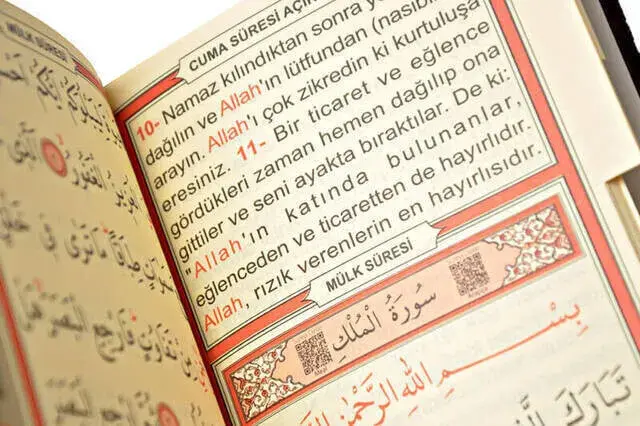 MÜLK SÛRESİ
لِيَبْلُوَكُمْ اَيُّكُمْ
الْعَزِيزُ الْغَفُورُ اَلَّذِى
طِبَاقًا مَا تَرٰى فِى
مِنْ تَفَاوُتٍ فَارْجِعِ الْبَصَرَ
ارْجِعِ الْبَصَرَ
CUMA SÛRESİ
10- Namaz kılındıktan sonra
dağılın ve Allah'ın lütfundan (nasibi
arayın. Allah'ı çok zikredin ki kurtuluşa
eresiniz. 11- Bir ticaret ve eğlence
gördükleri zaman hemen dağılıp ona
gittiler ve seni ayakta bıraktılar. De ki:
"Allah'ın katında bulunanlar,
eğlenceden ve ticaretten de hayırlıdır.
Allah, rızık verenlerin en hayırlısıdır.
MÜLK SÛRESİ
سُورَةُ الْمُلْكِ
بِسْمِ اللهِ الرَّحْمٰنِ
تَبَارَكَ